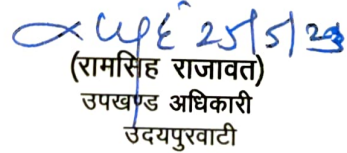 25/5/23
(रामसिंह राजावत)
उपखण्ड अधिकारी
उदयपुरवाटी